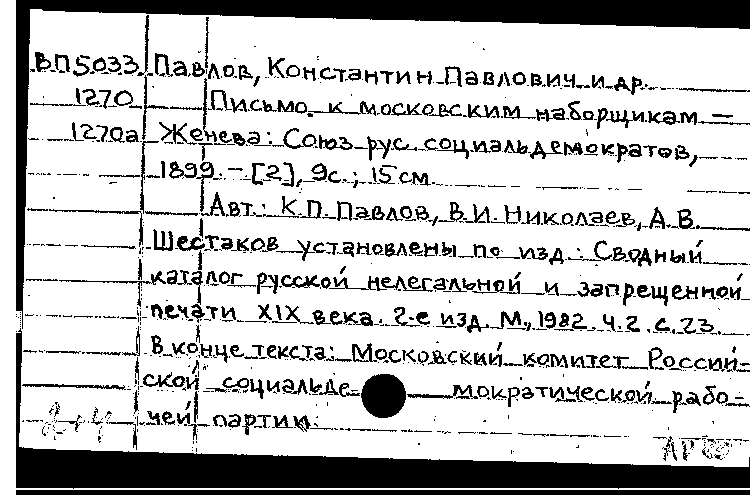 ВП5033 Павлов, Константин Павлович и др.
1270 Письмо к московским наборщикам. —
1270а Женева: Союз рус. социальдемократов,
1899. — [2], 9с.; 15см.
Авт.: К.П. Павлов, В.И. Николаев, А.В.
Шестаков установлены по изд.: Сводный
каталог русской нелегальной и запрещенной
печати XIX века. 2-е изд. М., 1982. Ч.2. с.23.
В конце текста: Московский комитет Россий-
ской социальде- мократической рабо-
чей партии.
2+4